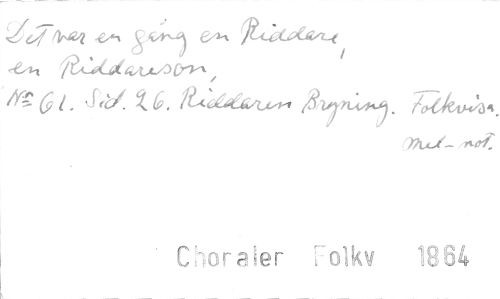 Det var en gång en Riddare,
en Riddareson,
No 61. Sid. 26. Riddaren Bryning. Folkvisa.
mel-not.
Choraler Folkv 1864